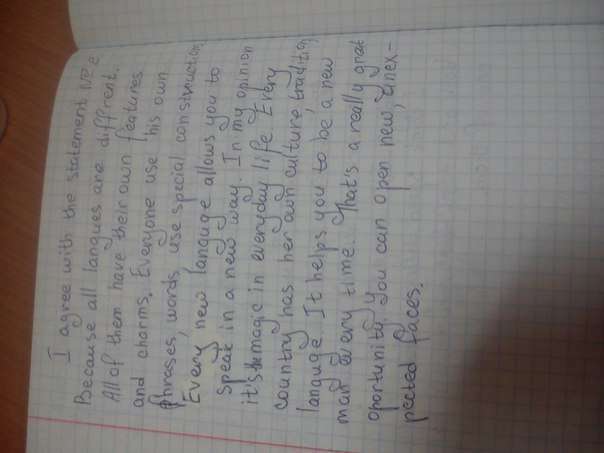 I agree with the statement № 2
Because all langues are different.
All of them have their own features
and charms. Everyone use his own
phrases, words, use special construction,
Every new languge allows you to
speak in a new way. In my opinion
it's the magic in everyday life. Every
country has her own culture, tradition,
languge. It helps you to be a new
man every time. That's a really great
oportunity. You can open new, unex-
pected faces.